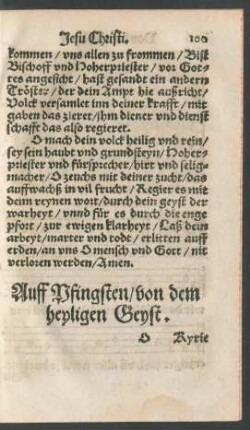 Jesu Christi. 100
kommen / vns allen zu frommen / Bist
Bischoff vnd Hoherpriester / vor Got-
tes angesicht / hast gesandt ein andern
Tröster / der dein Ampt hie außricht /
Volck versamlet inn deiner krafft / mit
gaben das zieret / ihm diener vnd dienst
schafft das also regieret.
O mach dein volck heilig vnd rein /
sey sein haubt vnd grundsteyn / Hoher-
priester vnd fürsprecher / hirt vnd selig-
macher / O zeuchs mit deiner zucht / das
auffwachß in vil frucht / Regier es mit
deim reynen wort / durch dein geyst der
warheyt / vnnd für es durch die enge
pfort / zur ewigen klarheyt / Laß dein
arbeyt / marter vnd todt / erlitten auff
erden / an vns O mensch vnd Gott / nit
verloren werden / Amen.
Auff Pfingsten / von dem
heyligen Geyst.
O Kyrie